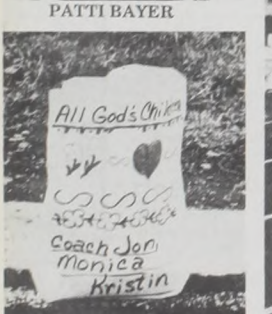 PATTI BAYER
All God's Child
Coach Jon
Monica
Kristin